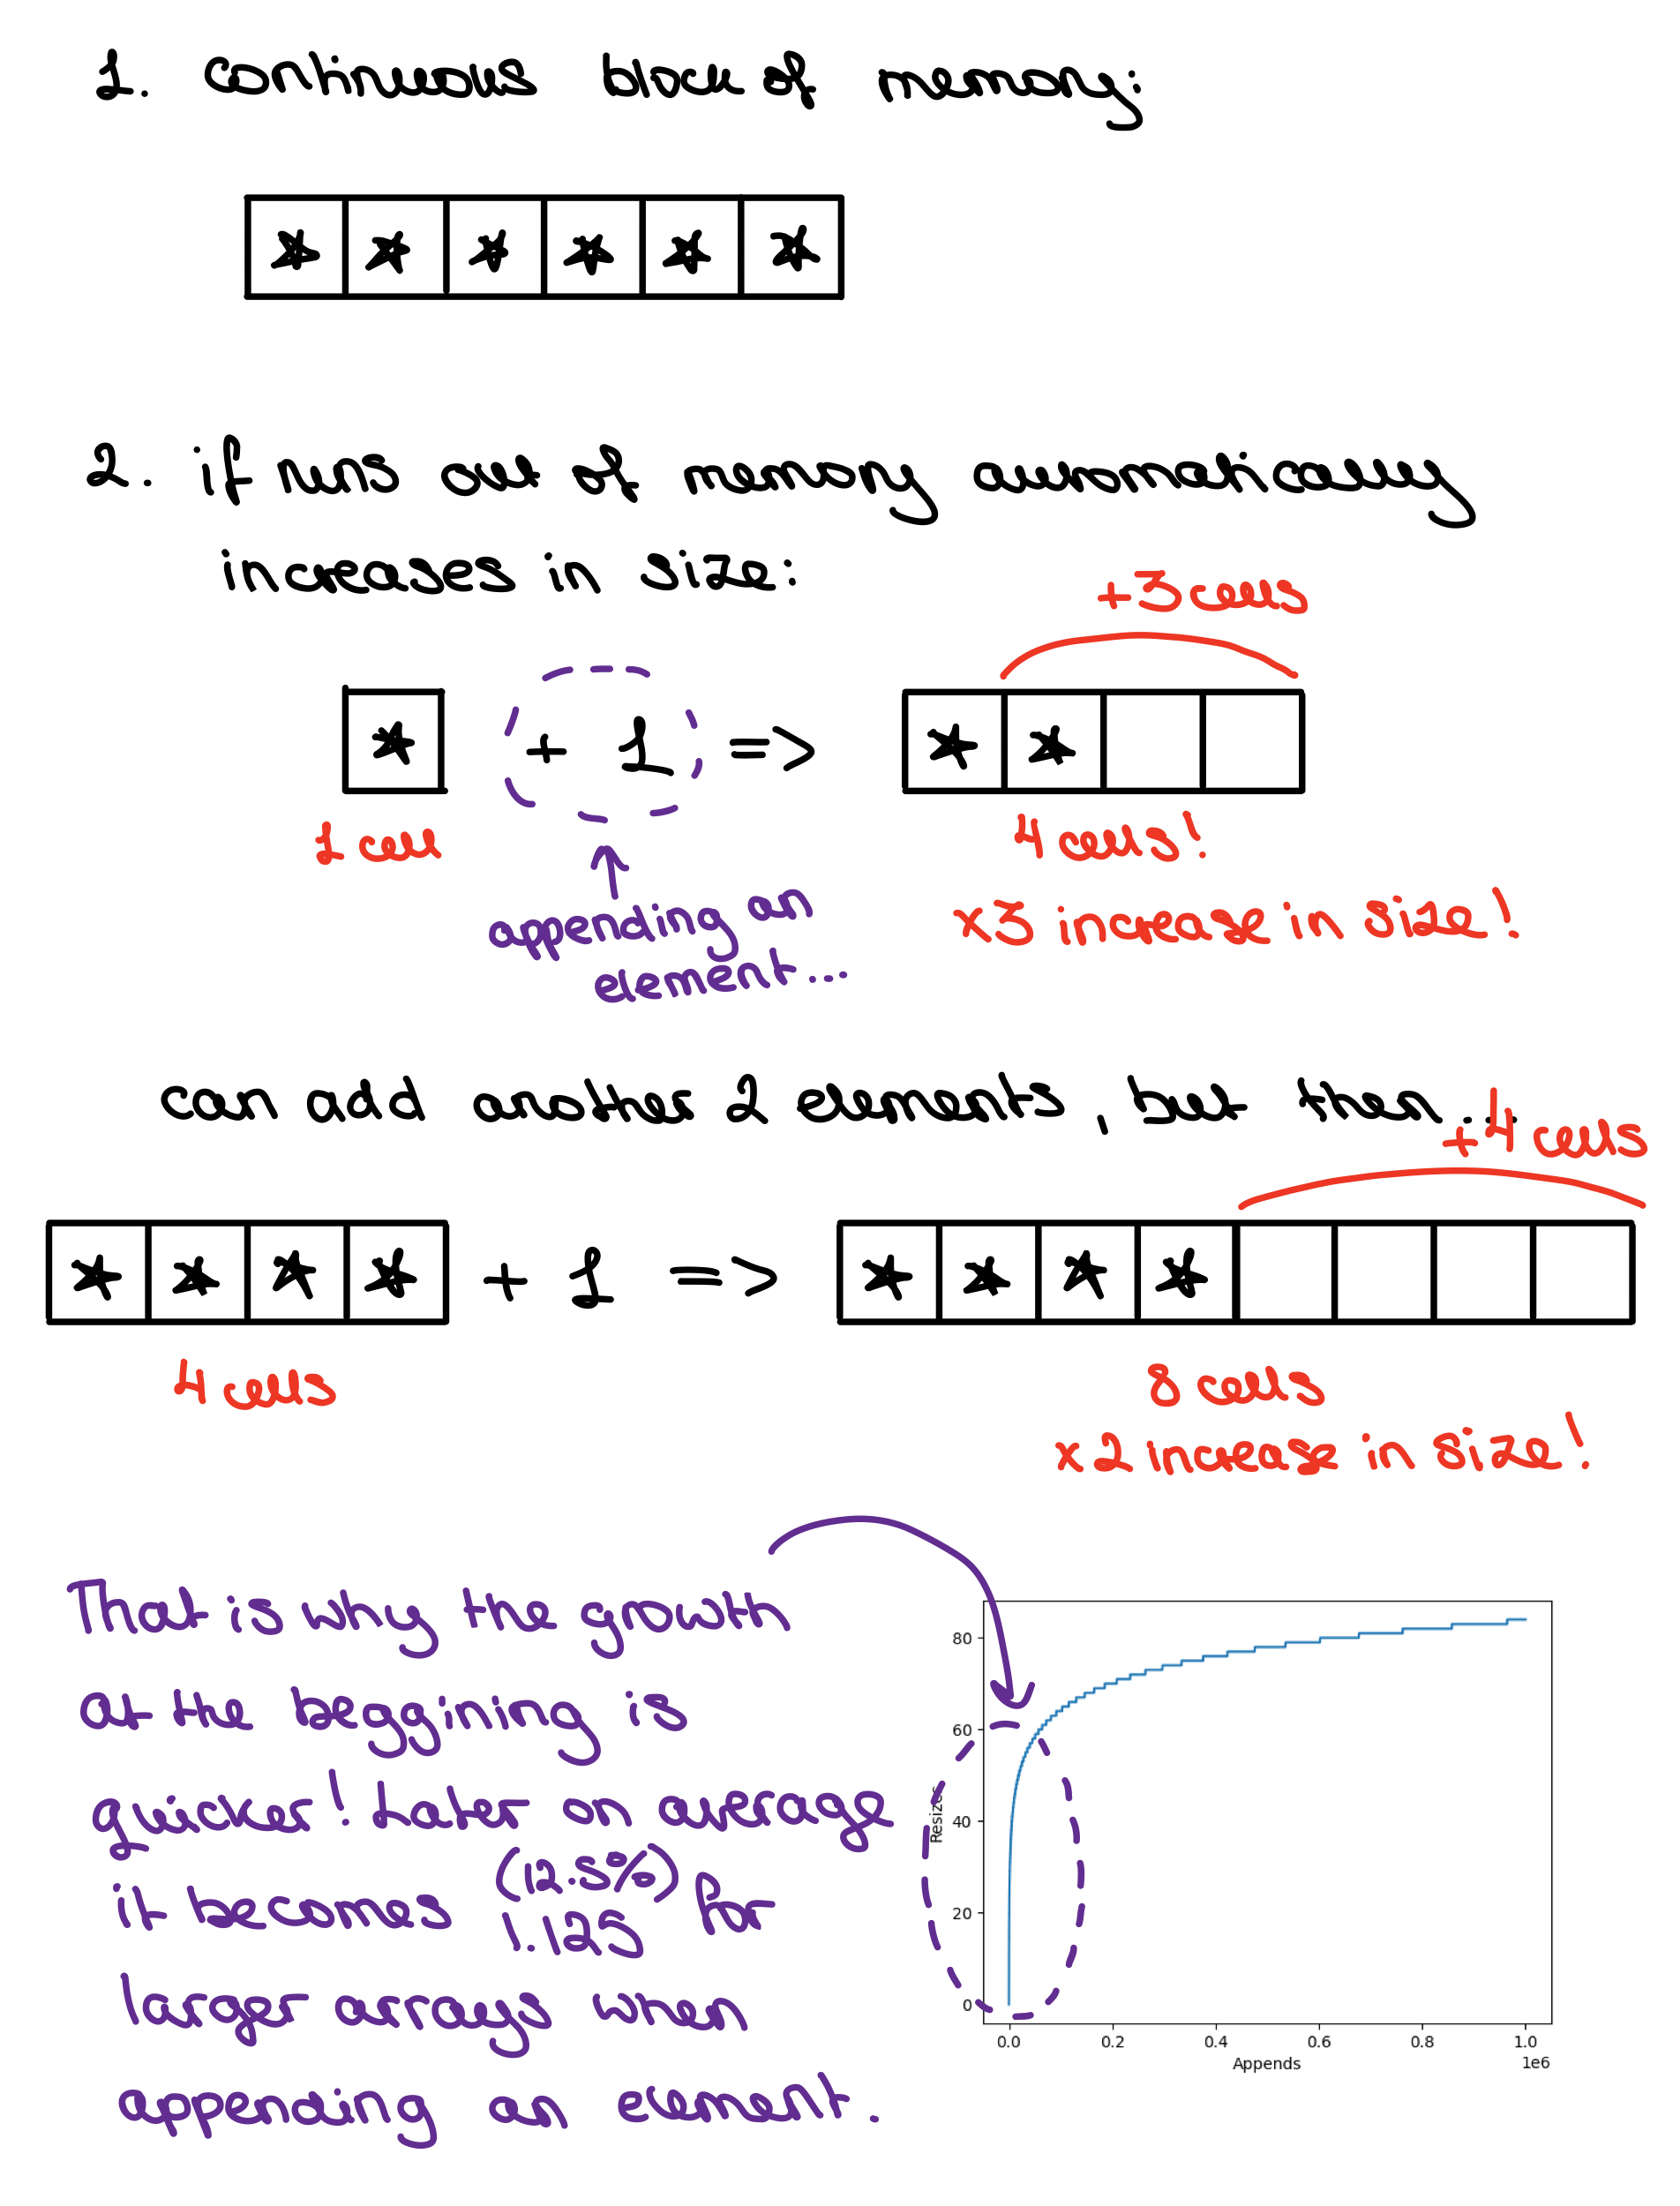 1. continuous block of memory:
2. if runs out of memory automatically
increases in size:
+3 cells
+ 1 =>
1 cell
4 cells!
appending an
element...
x3 increase in size!
can add another 2 elements, but then...
+4 cells
+ 1 =>
4 cells
8 cells
x2 increase in size!
That is why the growth
at the beggining is
quicker! Later on average
it becomes (12.5%) 1.125 for
larger arrays when
appending an element.
80
60
40
20
0
Resizes
0.0 0.2 0.4 0.6 0.8 1.0
1e6
Appends